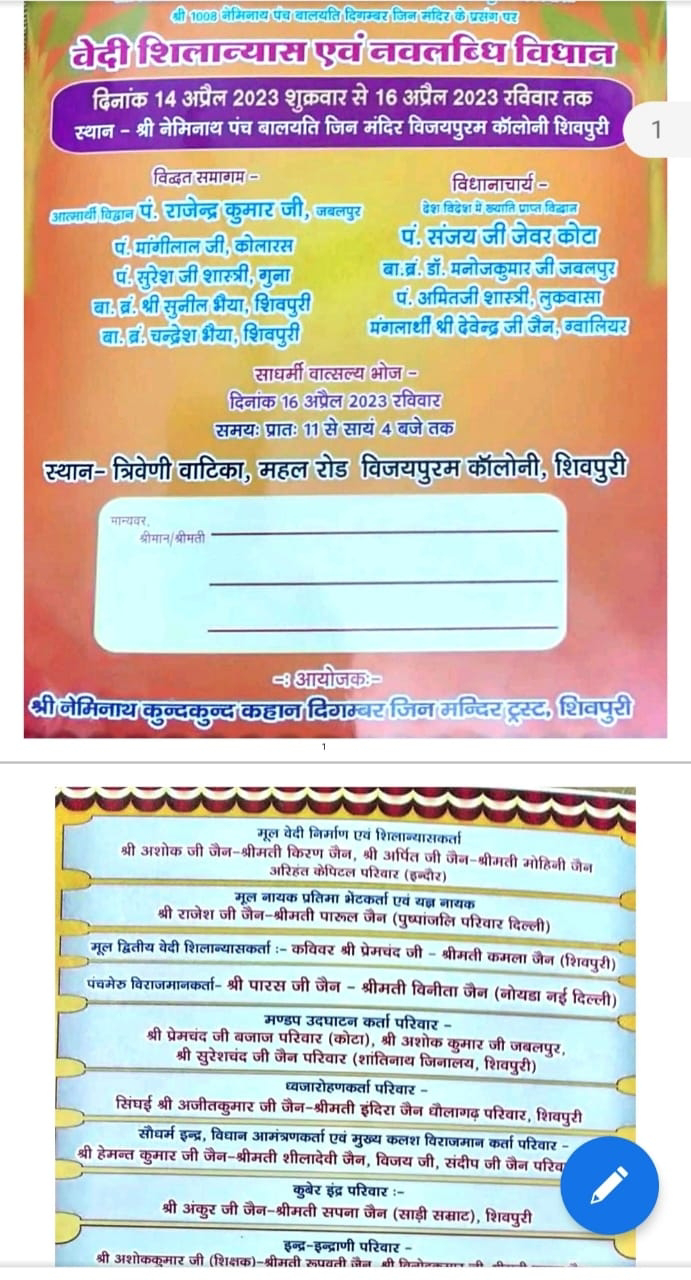 श्री 1008 नेमिनाथ पंच बालयति दिगम्बर जिन मंदिर के प्रसंग पर
वेदी शिलान्यास एवं नवलब्धि विधान
दिनांक 14 अप्रैल 2023 शुक्रवार से 16 अप्रैल 2023 रविवार तक
स्थान - श्री नेमिनाथ पंच बालयति जिन मंदिर विजयपुरम कॉलोनी शिवपुरी
1
विद्वत समागम -
आत्मार्थी विद्वान पं. राजेन्द्र कुमार जी, जबलपुर
पं. मांगीलाल जी, कोलारस
पं. सुरेश जी शास्त्री, गुना
बा. ब्रं. श्री सुनील भैया, शिवपुरी
बा. ब्रं. चन्द्रेश भैया, शिवपुरी
विधानाचार्य -
देश विदेश में ख्याति प्राप्त विद्वान
पं. संजय जी जेवर कोटा
बा.ब्रं. डॉ. मनोजकुमार जी जबलपुर
पं. अमितजी शास्त्री, लुकवासा
मंगलार्थी श्री देवेन्द्र जी जैन, ग्वालियर
साधर्मी वात्सल्य भोज -
दिनांक 16 अप्रैल 2023 रविवार
समयः प्रातः 11 से सायं 4 बजे तक
स्थान- त्रिवेणी वाटिका, महल रोड विजयपुरम कॉलोनी, शिवपुरी
मान्यवर,
श्रीमान/श्रीमती
-: आयोजकः-
श्री नेमिनाथ कुन्दकुन्द कहान दिगम्बर जिन मन्दिर ट्रस्ट, शिवपुरी
1
मूल वेदी निर्माण एवं शिलान्यासकर्ता
श्री अशोक जी जैन-श्रीमती किरण जैन, श्री अर्पित जी जैन-श्रीमती मोहिनी जैन
अरिहंत केपिटल परिवार (इन्दौर)
मूल नायक प्रतिमा भेंटकर्ता एवं यज्ञ नायक
श्री राजेश जी जैन-श्रीमती पारूल जैन (पुष्पांजलि परिवार दिल्ली)
मूल द्वितीय वेदी शिलान्यासकर्ता :- कविवर श्री प्रेमचंद जी - श्रीमती कमला जैन (शिवपुरी)
पंचमेरु विराजमानकर्ता- श्री पारस जी जैन - श्रीमती विनीता जैन (नोयडा नई दिल्ली)
मण्डप उदघाटन कर्ता परिवार -
श्री प्रेमचंद जी बजाज परिवार (कोटा), श्री अशोक कुमार जी जबलपुर,
श्री सुरेशचंद जी जैन परिवार (शांतिनाथ जिनालय, शिवपुरी)
ध्वजारोहणकर्ता परिवार -
सिंघई श्री अजीतकुमार जी जैन-श्रीमती इंदिरा जैन धौलागढ़ परिवार, शिवपुरी
सौधर्म इन्द्र, विधान आमंत्रणकर्ता एवं मुख्य कलश विराजमान कर्ता परिवार -
श्री हेमन्त कुमार जी जैन-श्रीमती शीलादेवी जैन, विजय जी, संदीप जी जैन
कुबेर इंद्र परिवार :-
श्री अंकुर जी जैन-श्रीमती सपना जैन (साड़ी सम्राट), शिवपुरी
इन्द्र-इन्द्राणी परिवार -
श्री अशोककुमार जी (शिक्षक)-श्रीमती रूपवती जैन,